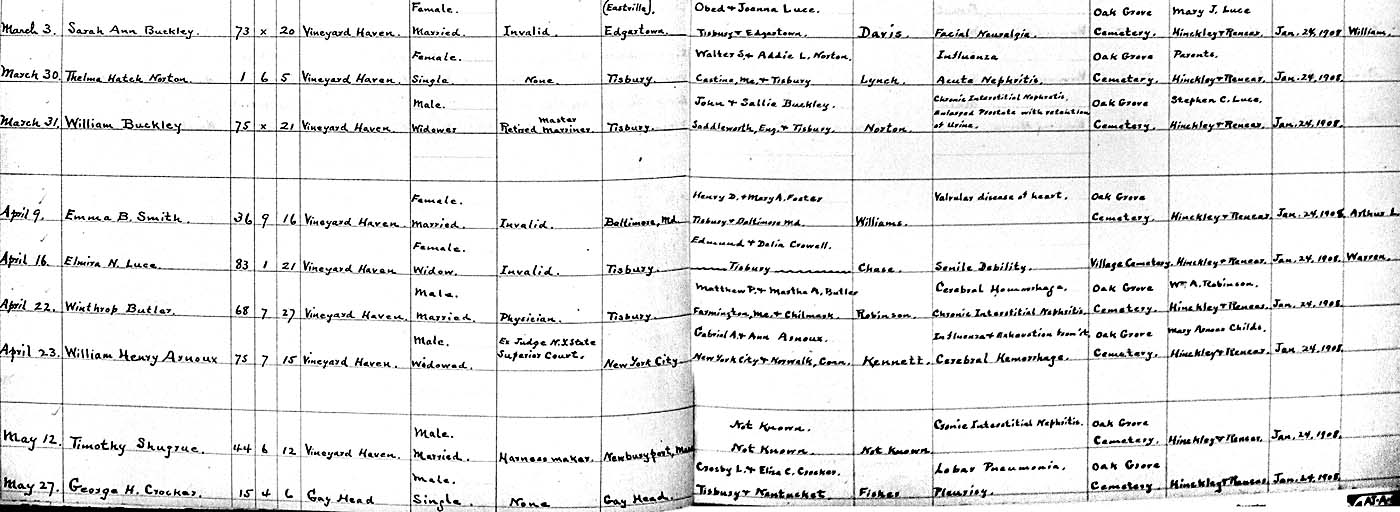 Female. (Eastville). Obed & Joanna Luce. Oak Grove Mary J. Luce
March 3. Sarah Ann Buckley. 73 x 20 Vineyard Haven. Married. Invalid. Edgartown. Tisbury & Edgartown. Davis. Facial Neuralgia. Cemetery. Hinckley & Renear. Jan. 24, 1908 William,
Female. Walter S. & Addie L. Norton. Influenza Oak Grove Parents.
March 30. Thelma Hatch Norton. 1 6 5 Vineyard Haven. Single. None. Tisbury. Castine, Me. & Tisbury Lynch. Acute Nephritis. Cemetery. Hinckley & Renear. Jan. 24, 1908.
Male. John & Sallie Buckley. Chronic Interstitial Nephritis. Oak Grove Stephen C. Luce.
Master Enlarged Prostate with retention
March 31. William Buckley 75 x 21 Vineyard Haven. Widower Retired Marriner. Tisbury. Saddleworth, Eng. & Tisbury. Norton. of Urine. Cemetery. Hinckley & Renear. Jan. 24, 1908.
Female. Henry D. & Mary A. Foster Valvular disease of heart. Oak Grove
April 9. Emma B. Smith. 36 9 16 Vineyard Haven. Married. Invalid. Baltimore, Md. Tisbury & Baltimore Md. Williams. Cemetery. Hinckley & Renear. Jan. 24, 1908. Arthur L
Female. Edmund & Delia Crowell.
April 16. Elmira N. Luce. 83 1 21 Vineyard Haven Widow. Invalid. Tisbury. Tisbury Chase. Senile Debility. Village Cemetery. Hinckley & Renear. Jan. 24, 1908. Warren.
Male. Matthew P. & Martha A. Butler Cerebral Houmorhage. Oak Grove Wm. A. Robinson.
April 22. Winthrop Butler. 68 7 27 Vineyard Haven. Married. Physician. Tisbury. Farmington, Me. & Chilmark Robinson. Chronic Interstitial Nephritis. Cemetery. Hinckley & Renear. Jan. 24, 1908.
Male. Ex Judge N.Y. State Gabriel A. & Ann Arnoux. Influenza & Exhaustion from it. Oak Grove Mary Arnoux Childs.
April 23. William Henry Arnoux 75 7 15 Vineyard Haven. Widowed. Superior Court. New York City New York City & Norwalk, Conn. Kennett. Cerebral Hemorrhage. Cemetery. Hinckley & Renear. Jan 24, 1908.
Male. Not Known. Cronic Interstitial Nephritis. Oak Grove
May 12. Timothy Shugrue. 44 6 12 Vineyard Haven. Married. Harness maker. Newburyport, Mass Not Known. Not Known Cemetery. Hinckley & Renear. Jan. 24, 1908.
Male. Crosby L. & Eliza C. Crocker. Lobar Pneumonia. Oak Grove
May 27. George H. Crocker. 15 4 6 Gay Head Single. None Gay Head. Tisbury & Nantucket. Fisher Pleurisy. Cemetery. Hinckley & Renear. Jan. 24, 1908.